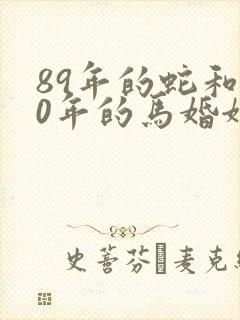 89年的蛇和
0年的馬婚
史蒂芬 麥克